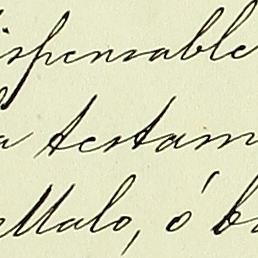 ispensable
a testam
allalo, ó b